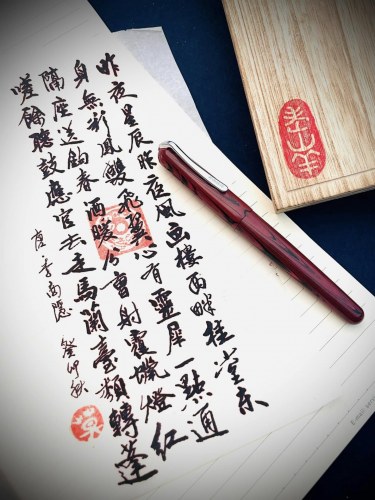 昨夜星辰昨夜風画樓西畔桂堂东
身無彩凤雙飛翼心有靈犀一點通
隔座送鈎春酒暖分曹射覆蠟燈紅
嗟餘聽鼓應官去走馬蘭臺類轉蓬
唐李商隐 癸卯秋